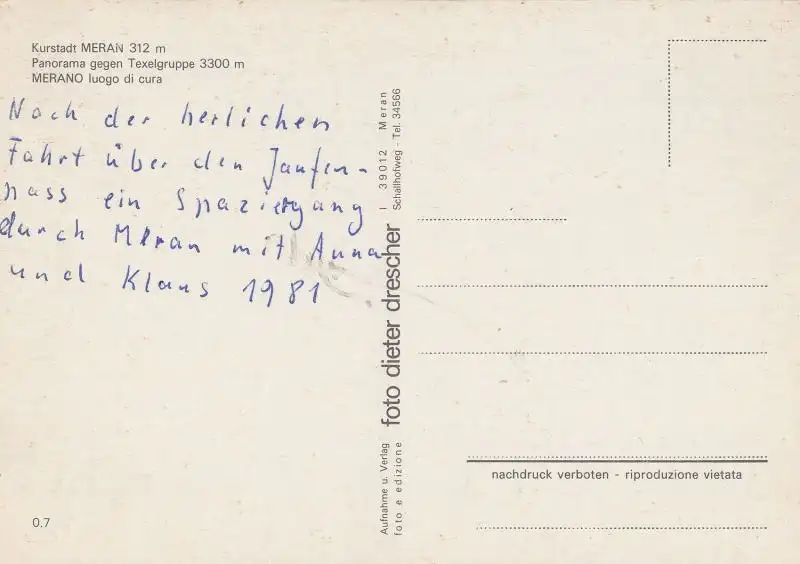 Kurstadt MERAN 312 m
Panorama gegen Texelgruppe 3300 m
MERANO luogo di cura
Nach der herlichen
Fahrt über den Jaufen-
pass ein Spaziergang
durch Meran mit Anna
und Klaus 1981
0.7
Aufnahme u. Verlag
foto e edizione
foto dieter drescher
I 39012 Meran
Schallhofweg - Tel. 34566
nachdruck verboten - riproduzione vietata